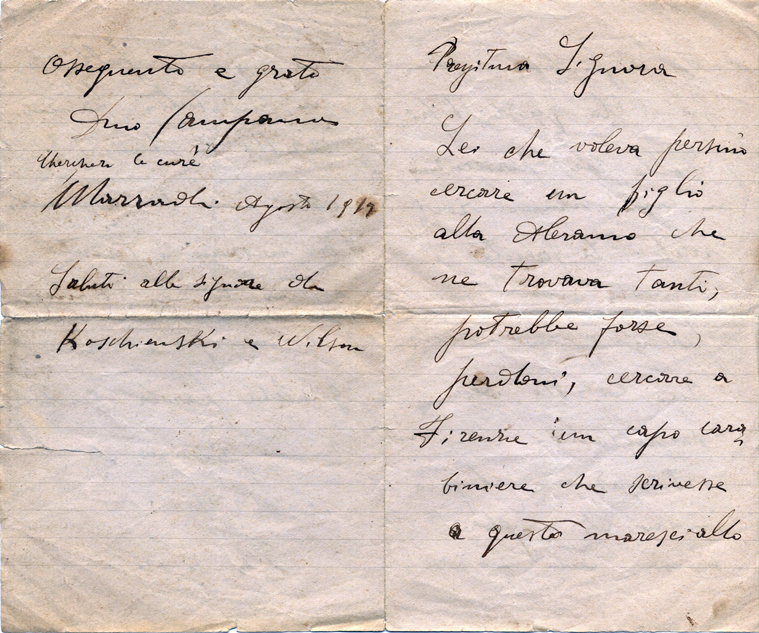 Pregitma Signora
Lei che voleva persino
cercare un figlio
alla Aleramo che
ne trovava tanti,
potrebbe forse,
perdoni, cercare a
Firenze un capo cara
biniere che scrivesse
a questo maresciallo
Ossequente e grato
Dino Campana
le curé
Marradi Agosto 191
Saluti alle signore de
Koschienski e Wilson